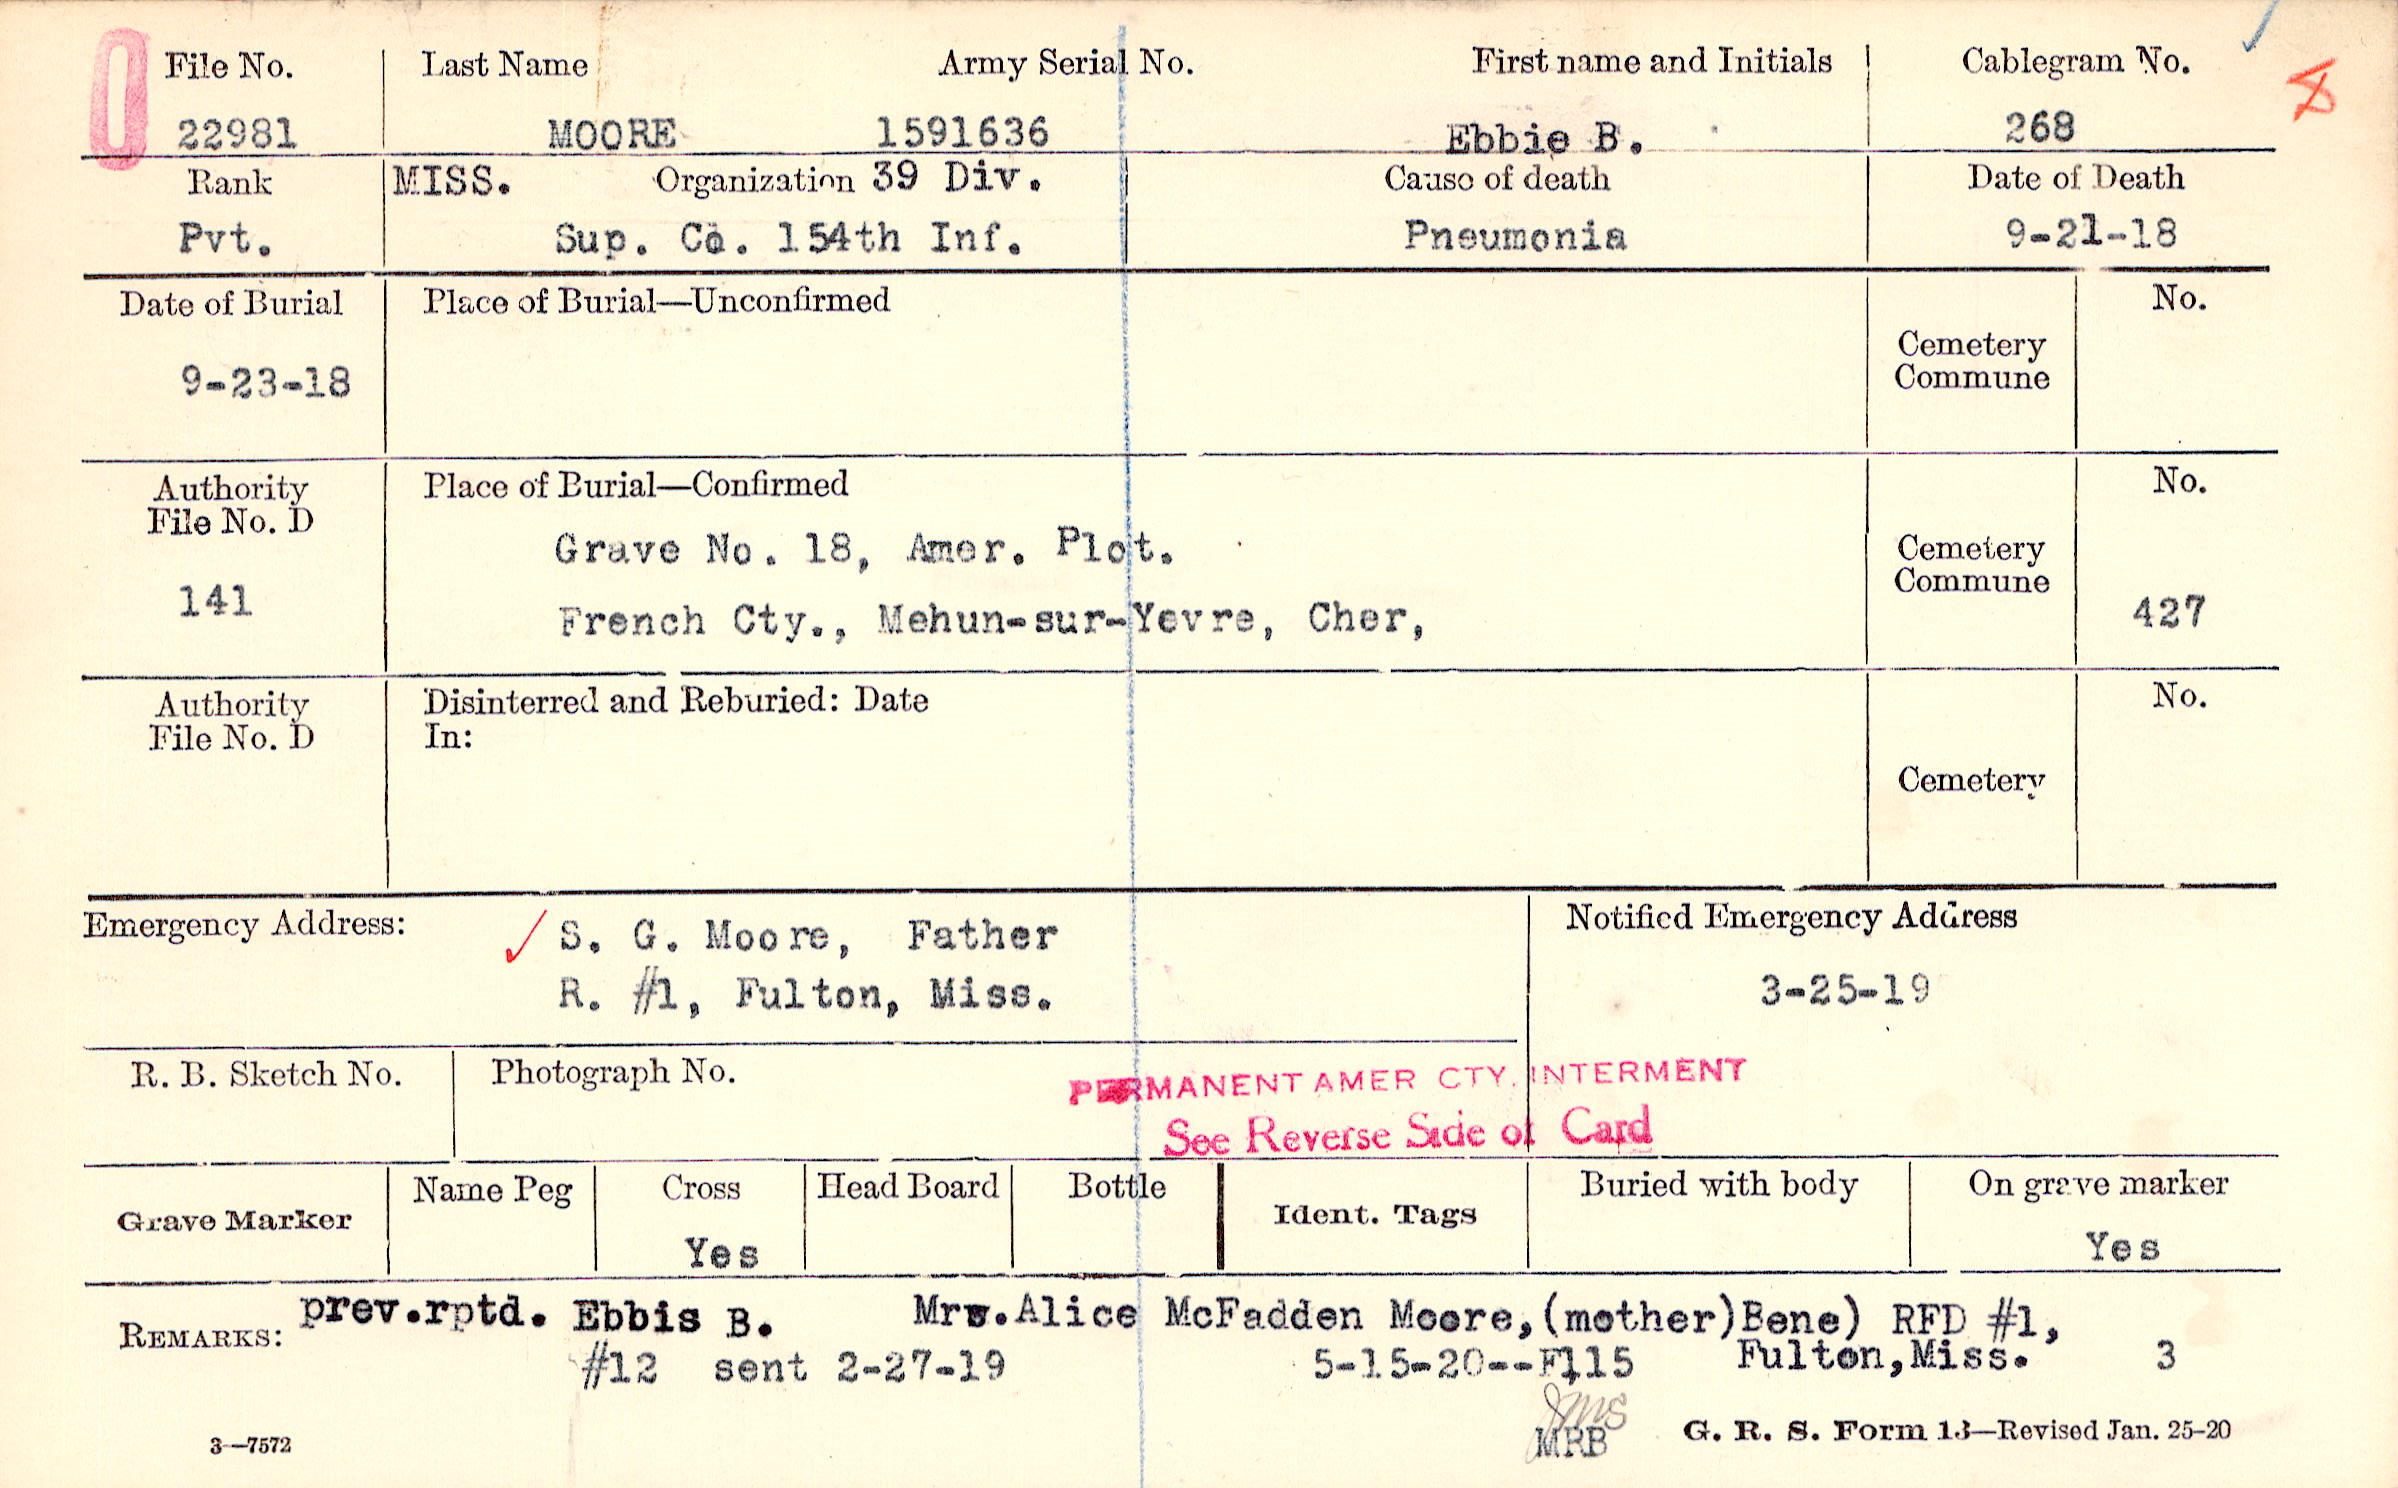 File No. Last Name Army Serial No. First name and Initials Cablegram No.
22981 MOORE 1591636 Ebbie B. 268
Rank MISS. Organization 39 Div. Cause of death Date of Death
Pvt. Sup. Co. 154th Inf. Pneumonia 9-21-18
Date of Burial Place of Burial—Unconfirmed No.
Cemetery
Commune
9-23-18
Authority Place of Burial—Confirmed No.
File No. D
Grave No. 18, Amer. Plot. Cemetery
Commune
141 French Cty., Mehun-sur-Yevre, Cher, 427
Authority Disinterred and Reburied: Date No.
File No. D In:
Cemetery
Emergency Address: S. G. Moore, Father Notified Emergency Address
R. #1, Fulton, Miss. 3-25-19
R. B. Sketch No. Photograph No. PERMANENT AMER CTY. INTERMENT
See Reverse Side of Card
Grave Marker Name Peg Cross Head Board Bottle Ident. Tags Buried with body On grave marker
Yes Yes
REMARKS: prev.rptd. Ebbis B. Mrs.Alice McFadden Moore,(mother)Bene) RFD #1,
#12 sent 2-27-19 5-15-20--F115 Fulton,Miss. 3
JMS
MRB
3—7572 G. R. S. Form 13—Revised Jan. 25-20